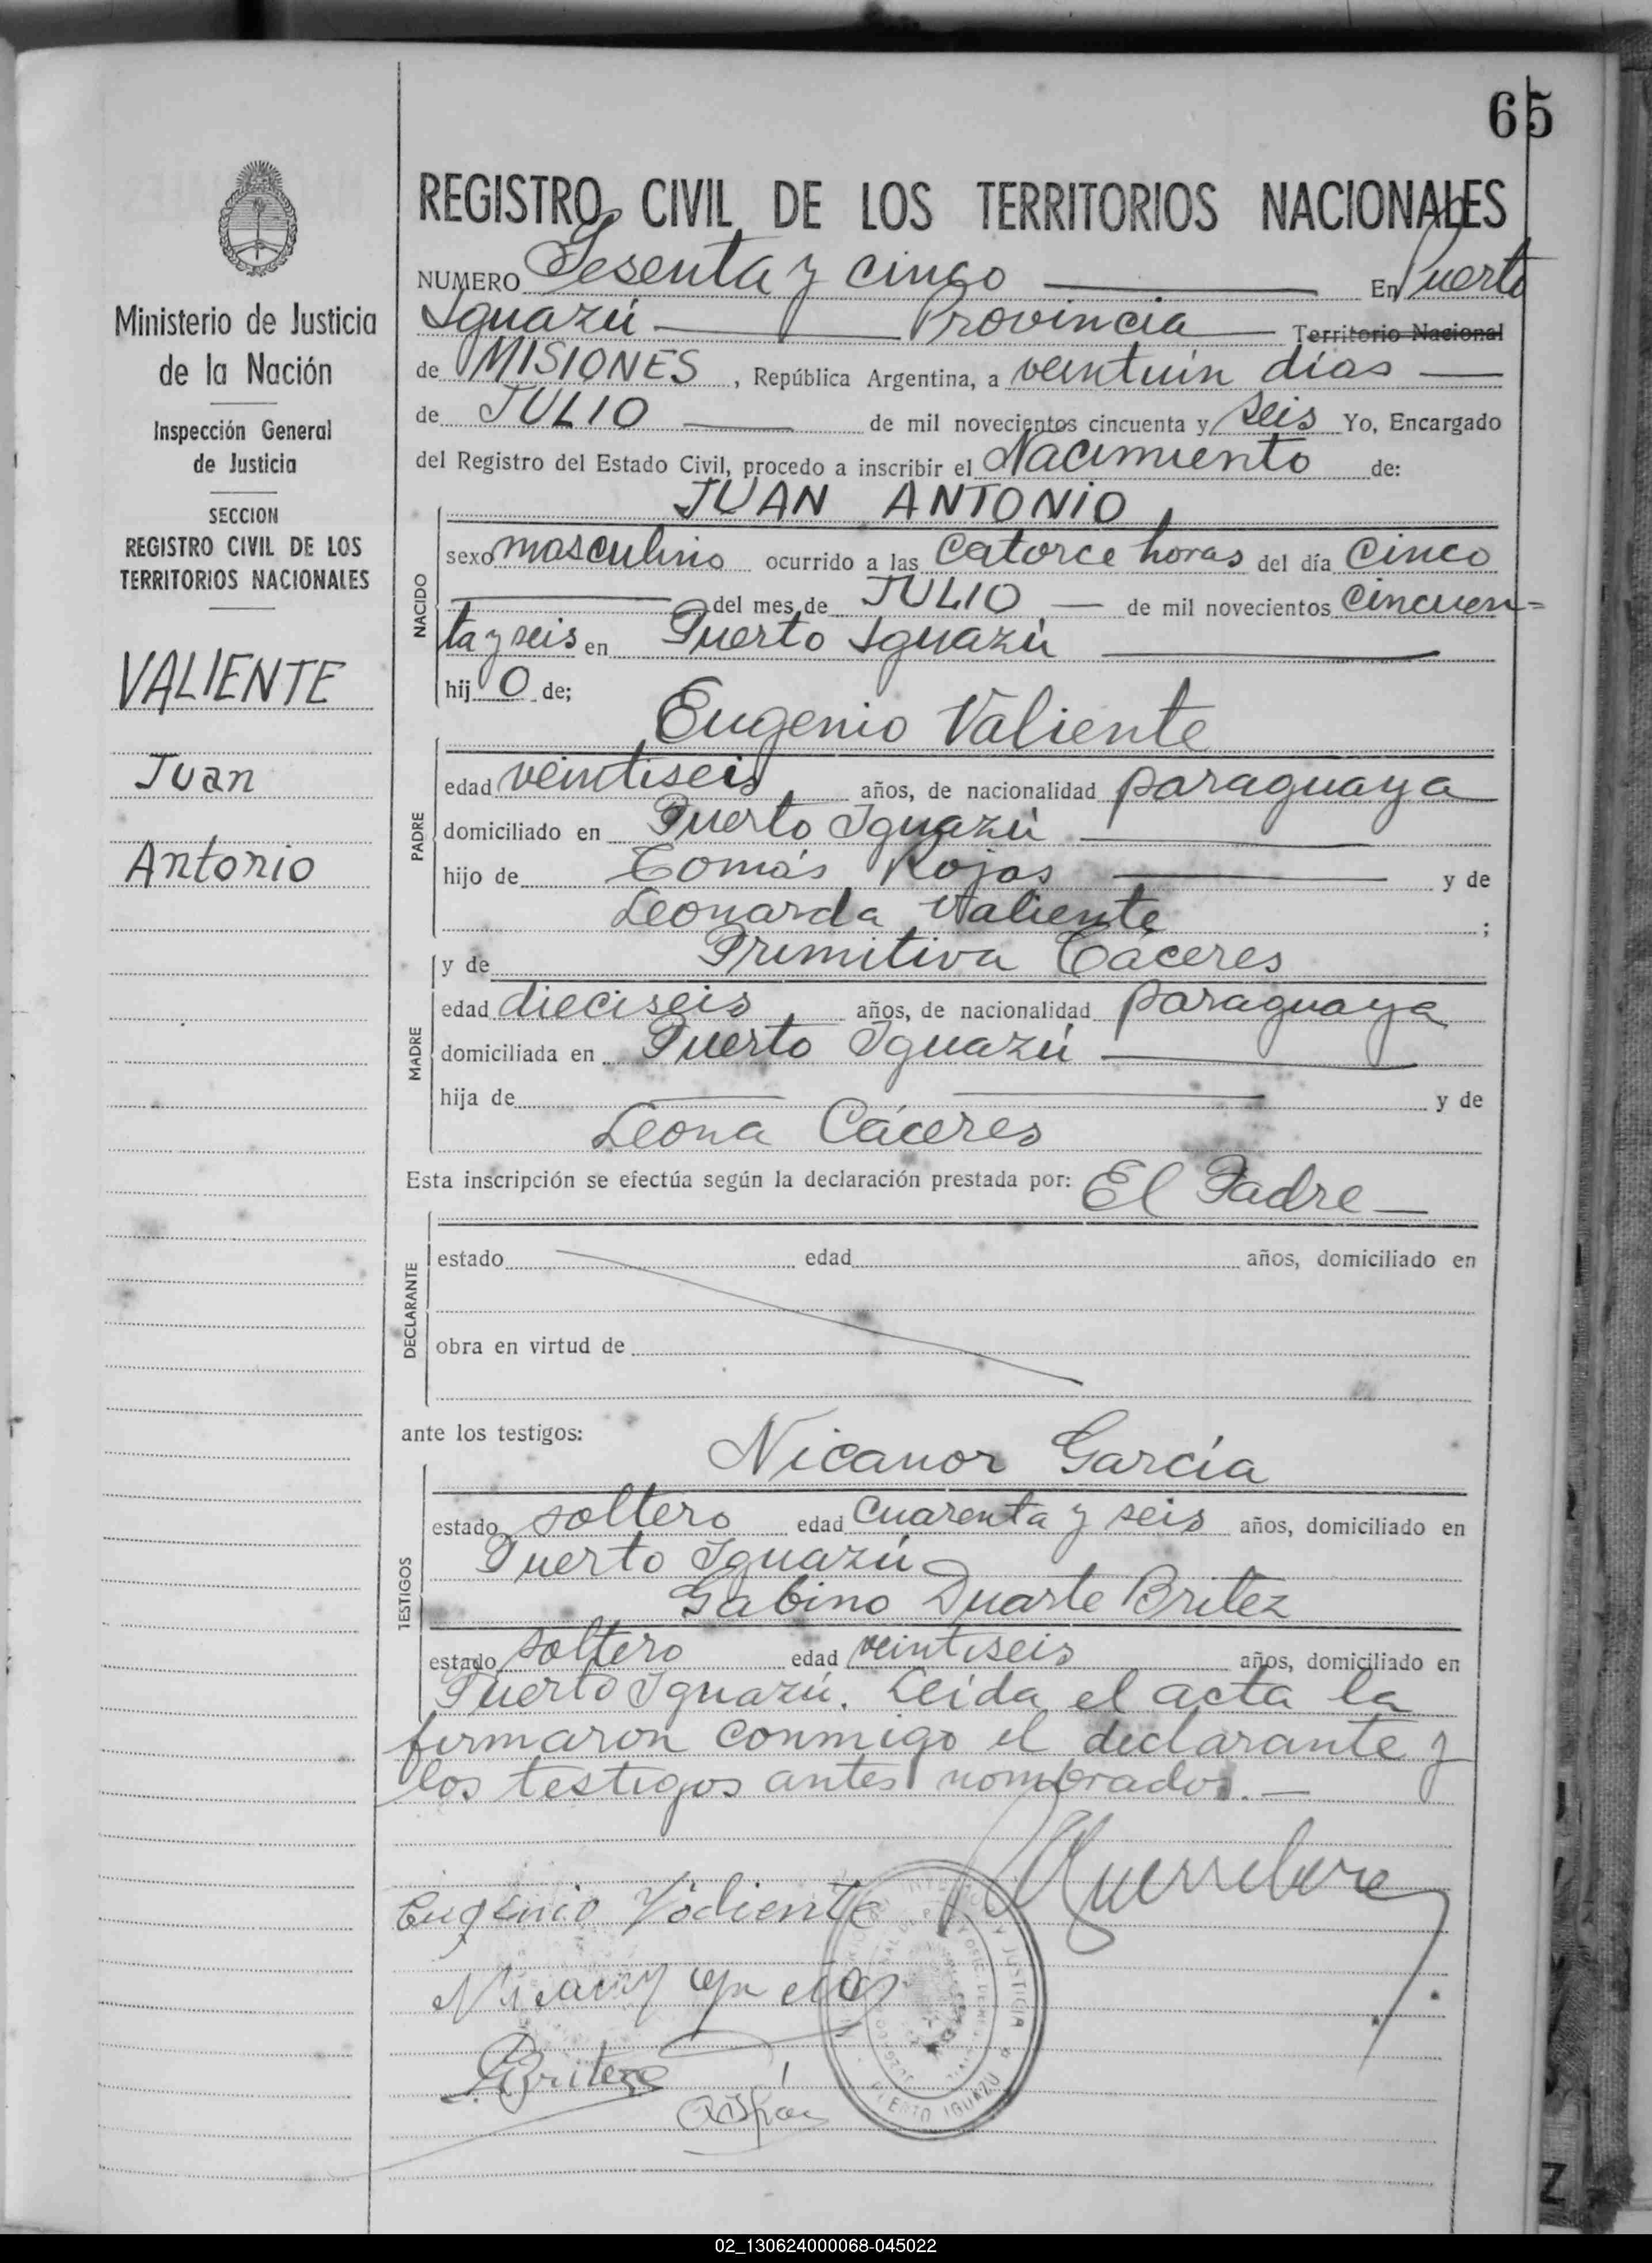 65
REGISTRO CIVIL DE LOS TERRITORIOS NACIONALES
NUMERO Sesenta y cinco En Puerto
Iguazú Provincia Territorio Nacional
de MISIONES, República Argentina, a veintiún días
de JULIO de mil novecientos cincuenta y seis Yo, Encargado
del Registro del Estado Civil, procedo a inscribir el Nacimiento de:
JUAN ANTONIO
NACIDO
sexo masculino ocurrido a las catorce horas del día cinco
del mes de JULIO de mil novecientos cincuen=
ta y seis en Puerto Iguazú
hijo de;
Eugenio Valiente
PADRE
edad veintiseis años, de nacionalidad paraguaya
domiciliado en Puerto Iguazú
hijo de Tomás Rojas y de
Leonarda Valiente ;
y de Primitiva Cáceres
MADRE
edad dieciseis años, de nacionalidad paraguaya
domiciliada en Puerto Iguazú
hija de y de
Leona Cáceres
Esta inscripción se efectúa según la declaración prestada por: El Padre
DECLARANTE
estado edad años, domiciliado en
obra en virtud de
ante los testigos:
Nicanor García
TESTIGOS
estado soltero edad cuarenta y seis años, domiciliado en
Puerto Iguazú
Gabino Duarte Britez
estado soltero edad veintiseis años, domiciliado en
Puerto Iguazú. Leida el acta la
firmaron conmigo el declarante y
los testigos antes nombrados.—
Eugenio Valiente
Britez
JUSTICIA
PUERTO IGUAZU
Ministerio de Justicia
de la Nación
Inspección General
de Justicia
SECCION
REGISTRO CIVIL DE LOS
TERRITORIOS NACIONALES
VALIENTE
Juan
Antonio
02_130624000068-045022